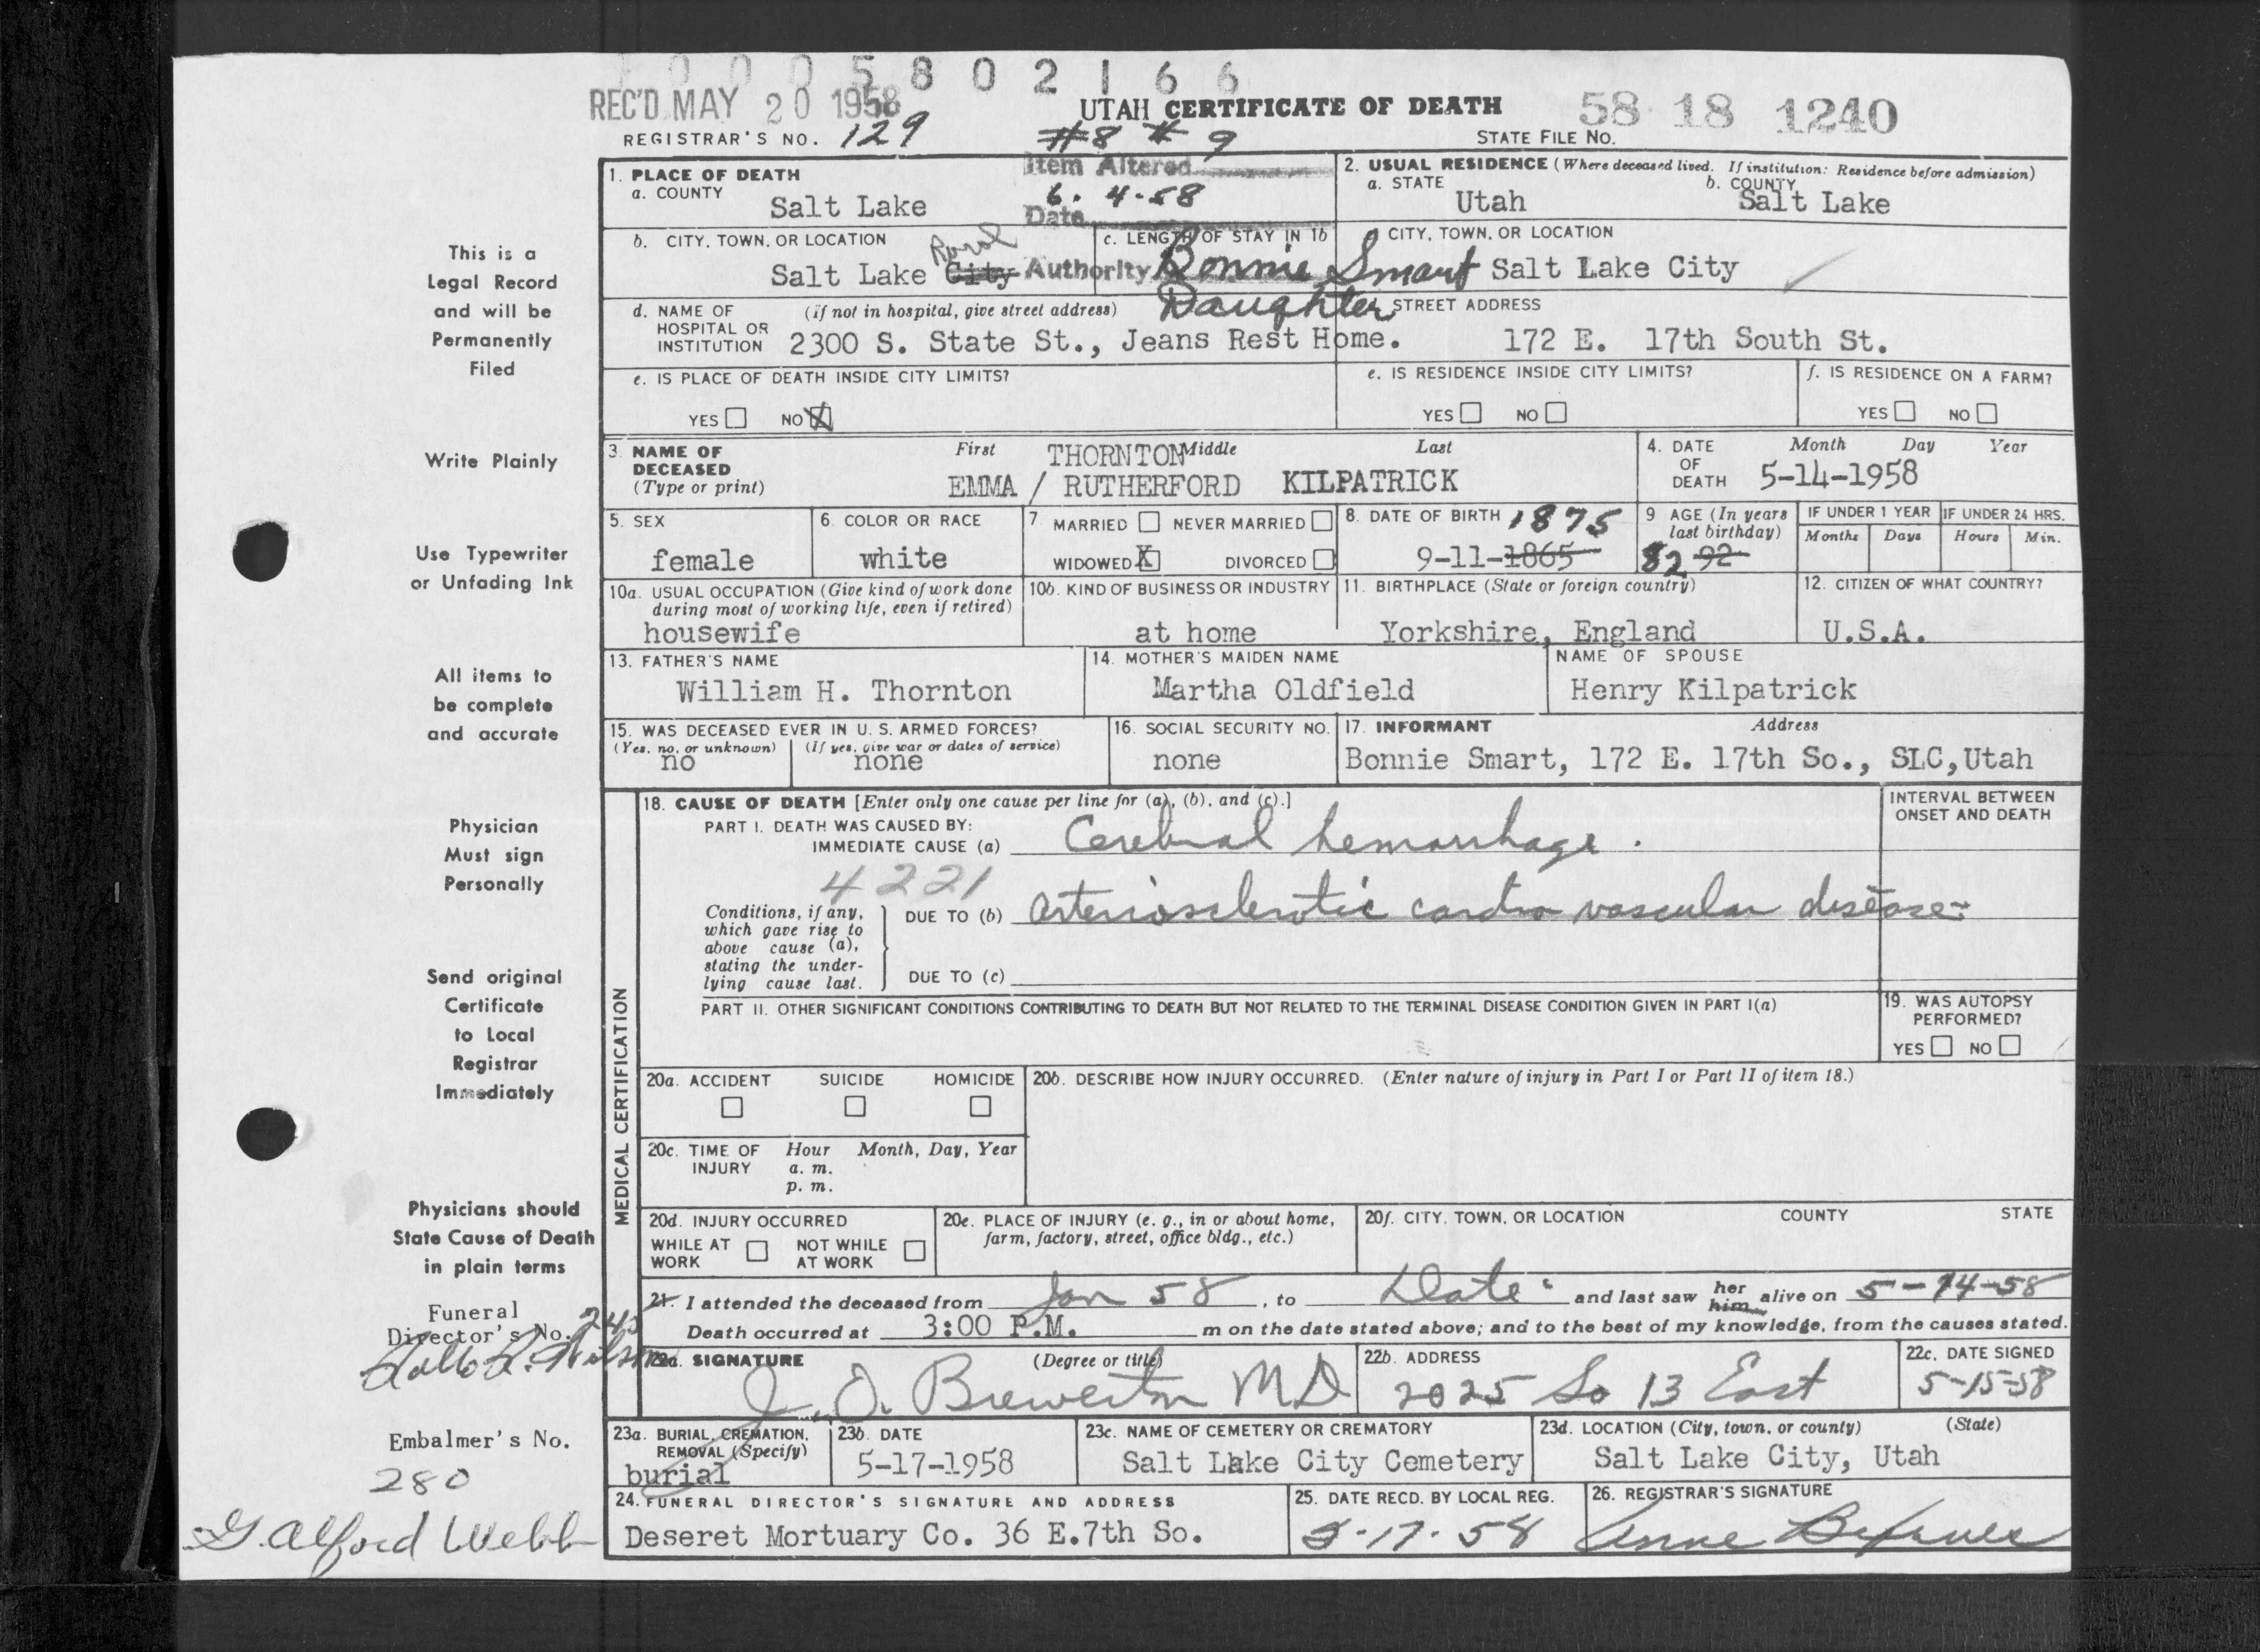 1 0 0 0 5 8 0 2 1 6 6
REC'D MAY 20 1958
UTAH CERTIFICATE OF DEATH
58 18 1240
REGISTRAR'S NO. 129
#8 # 9
STATE FILE NO.
Item Altered
6. 4-58
Date
1. PLACE OF DEATH
a. COUNTY
Salt Lake
2. USUAL RESIDENCE (Where deceased lived. If institution: Residence before admission)
a. STATE
Utah
b. COUNTY
Salt Lake
b. CITY, TOWN, OR LOCATION
Rural
Salt Lake City
c. LENGTH OF STAY IN 1b
Authority Bonnie Smart
Daughter
CITY, TOWN, OR LOCATION
Salt Lake City
d. NAME OF HOSPITAL OR INSTITUTION
(If not in hospital, give street address)
2300 S. State St., Jeans Rest Home.
STREET ADDRESS
172 E. 17th South St.
e. IS PLACE OF DEATH INSIDE CITY LIMITS?
YES NO X
e. IS RESIDENCE INSIDE CITY LIMITS?
YES NO
f. IS RESIDENCE ON A FARM?
YES NO
3. NAME OF DECEASED
(Type or print)
First Middle Last
THORNTON
EMMA / RUTHERFORD KILPATRICK
4. DATE OF DEATH
Month Day Year
5-14-1958
5. SEX
female
6 COLOR OR RACE
white
7 MARRIED NEVER MARRIED
WIDOWED X DIVORCED
8. DATE OF BIRTH 1875
9-11-1865
9 AGE (In years last birthday)
82 92
IF UNDER 1 YEAR
Months Days
IF UNDER 24 HRS.
Hours Min.
10a. USUAL OCCUPATION (Give kind of work done during most of working life, even if retired)
housewife
10b. KIND OF BUSINESS OR INDUSTRY
at home
11. BIRTHPLACE (State or foreign country)
Yorkshire, England
12. CITIZEN OF WHAT COUNTRY?
U.S.A.
13. FATHER'S NAME
William H. Thornton
14. MOTHER'S MAIDEN NAME
Martha Oldfield
NAME OF SPOUSE
Henry Kilpatrick
15. WAS DECEASED EVER IN U. S. ARMED FORCES?
(Yes, no, or unknown) (If yes, give war or dates of service)
no none
16. SOCIAL SECURITY NO.
none
17. INFORMANT Address
Bonnie Smart, 172 E. 17th So., SLC, Utah
MEDICAL CERTIFICATION
18. CAUSE OF DEATH [Enter only one cause per line for (a), (b), and (c).]
INTERVAL BETWEEN ONSET AND DEATH
PART I. DEATH WAS CAUSED BY:
IMMEDIATE CAUSE (a) Cerebral hemorrhage.
4221
Conditions, if any, which gave rise to above cause (a), stating the underlying cause last.
DUE TO (b) arteriosclerotic cardio vascular disease
DUE TO (c)
PART II. OTHER SIGNIFICANT CONDITIONS CONTRIBUTING TO DEATH BUT NOT RELATED TO THE TERMINAL DISEASE CONDITION GIVEN IN PART I(a)
19. WAS AUTOPSY PERFORMED?
YES NO
20a. ACCIDENT SUICIDE HOMICIDE
20b. DESCRIBE HOW INJURY OCCURRED. (Enter nature of injury in Part I or Part II of item 18.)
20c. TIME OF INJURY
Hour Month, Day, Year
a. m.
p. m.
20d. INJURY OCCURRED
WHILE AT WORK NOT WHILE AT WORK
20e. PLACE OF INJURY (e. g., in or about home, farm, factory, street, office bldg., etc.)
20f. CITY, TOWN, OR LOCATION COUNTY STATE
21. I attended the deceased from Jan 58, to Date and last saw her him alive on 5-14-58
Death occurred at 3:00 P.M. m on the date stated above; and to the best of my knowledge, from the causes stated.
22a. SIGNATURE (Degree or title)
J. O. Brewerton MD
22b. ADDRESS
2025 So 13 East
22c. DATE SIGNED
5-15-58
23a. BURIAL, CREMATION, REMOVAL (Specify)
burial
23b. DATE
5-17-1958
23c. NAME OF CEMETERY OR CREMATORY
Salt Lake City Cemetery
23d. LOCATION (City, town, or county) (State)
Salt Lake City, Utah
24. FUNERAL DIRECTOR'S SIGNATURE AND ADDRESS
Deseret Mortuary Co. 36 E.7th So.
25. DATE RECD. BY LOCAL REG.
5-17-58
26. REGISTRAR'S SIGNATURE
Anne
This is a
Legal Record
and will be
Permanently
Filed
Write Plainly
Use Typewriter
or Unfading Ink
All items to
be complete
and accurate
Physician
Must sign
Personally
Send original
Certificate
to Local
Registrar
Immediately
Physicians should
State Cause of Death
in plain terms
Funeral
Director's No.
Embalmer's No.
280
G. Alford Webb